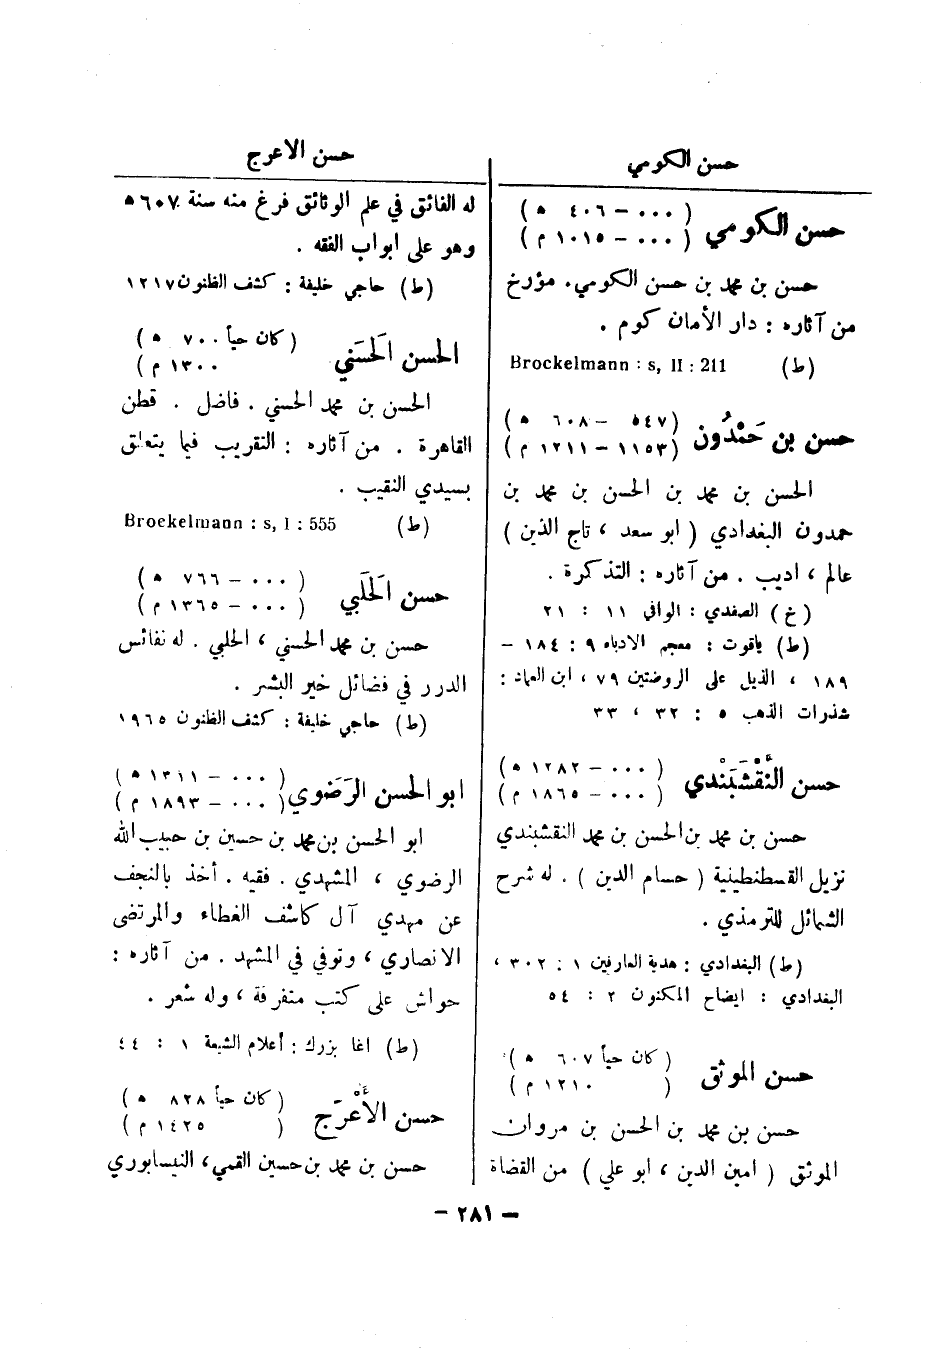 حسن الكومي
حسن الكومي ( ٠٠٠ – ٤٠٦ ه )
( ٠٠٠ – ١٠١٥ م )
حسن بن محمد بن حسن الكومي. مؤرخ
من آثاره : دار الأمان كوم .
(ط) Brockelmann : s, II : 211
حسن بن حَمْدُون (٥٤٧ – ٦٠٨ ه )
(١١٥٣ – ١٢١١ م )
الحسن بن محمد بن الحسن بن محمد بن
حمدون البغدادي ( ابو سعد ، تاج الدين )
عالم ، اديب . من آثاره : التذكرة .
(خ) الصفدي : الوافي ١١ : ٢١
(ط) ياقوت : معجم الادباء ٩ : ١٨٤ –
١٨٩ ، الذيل على الروضتين ٧٩ ، ابن العماد :
شذرات الذهب ٥ : ٣٢ ، ٣٣
حسن النَّقْشَبَنْدي ( ٠٠٠ – ١٢٨٢ ه )
( ٠٠٠ – ١٨٦٥ م )
حسن بن محمد بن الحسن بن محمد النقشبندي
نزيل القسطنطينية ( حسام الدين ) . له شرح
الشمائل للترمذي .
(ط) البغدادي : هدية العارفين ١ : ٣٠٢ ،
البغدادي : ايضاح المكنون ٢ : ٥٤
حسن الموثق ( كان حياً ٦٠٧ ه )
( ١٢١٠ م )
حسن بن محمد بن الحسن بن مروان
الموثق ( امين الدين ، ابو علي ) من القضاة
حسن الاعرج
له الفائق في علم الوثائق فرغ منه سنة ٦٠٧ ه
وهو على ابواب الفقه .
(ط) حاجي خليفة : كشف الظنون ١٢١٧
الحسن الحَسَني ( كان حياً ٧٠٠ ه )
١٣٠٠ م )
الحسن بن محمد الحسني . فاضل . قطن
القاهرة . من آثاره : التقريب فيما يتعلق
بسيدي النقيب .
(ط) Brockelmann : s, I : 555
حسن الحَلَبي ( ٠٠٠ – ٧٦٦ ه )
( ٠٠٠ – ١٣٦٥ م )
حسن بن محمد الحسني ، الحلبي . له نفائس
الدرر في فضائل خير البشر .
(ط) حاجي خليفة : كشف الظنون ١٩٦٥
ابو الحسن الرَضَوي ( ٠٠٠ – ١٣١١ ه )
( ٠٠٠ – ١٨٩٣ م )
ابو الحسن بن محمد بن حسين بن حبيب الله
الرضوي ، المشهدي . فقيه . أخذ بالنجف
عن مهدي آل كاشف الغطاء والمرتضى
الانصاري ، وتوفي في المشهد . من آثاره :
حواش على كتب متفرقة ، وله شعر .
(ط) اغا بزرك : أعلام الشيعة ١ : ٤٤
حسن الأَعْرَج ( كان حياً ٨٢٨ ه )
( ١٤٢٥ م )
حسن بن محمد بن حسين القمي، النيسابوري
– ٢٨١ –